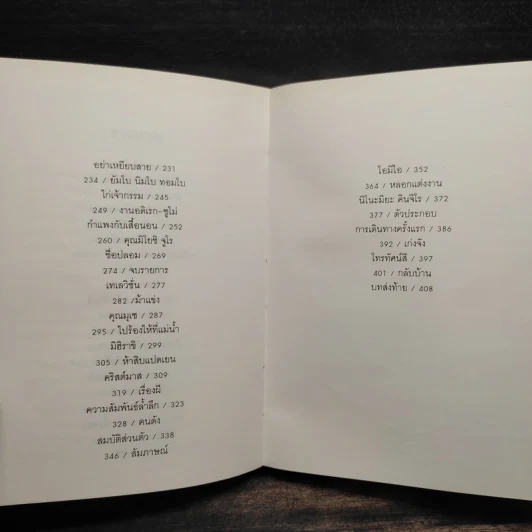 อย่าเหยียบสาย / 231
234 / ยัมโบ นิมโบ ทอมโบ
ไก่เจ้ากรรม / 245
249 / งานอดิเรก-ซูโม่
กำแพงกับเสื่อนอน / 252
260 / คุณมิโยชิ จูโร
ชื่อปลอม / 269
274 / จบรายการ
เทเลวิชั่น / 277
282 /ม้าแข่ง
คุณมุเซ / 287
295 / ไปร้องไห้ที่แม่น้ำ
มิฮิราชิ / 299
305 / ห้าสิบแปดเยน
คริสต์มาส / 309
319 / เรื่องผี
ความสัมพันธ์ล้ำลึก / 323
328 / คนดัง
สมบัติส่วนตัว / 338
346 / สัมภาษณ์
โอมิไอ / 352
364 / หลอกแต่งงาน
นิโนะมิยะ คินจิโร / 372
377 / ตัวประกอบ
การเดินทางครั้งแรก / 386
392 / เก่งจัง
โทรทัศน์สี / 397
401 / กลับบ้าน
บทส่งท้าย / 408